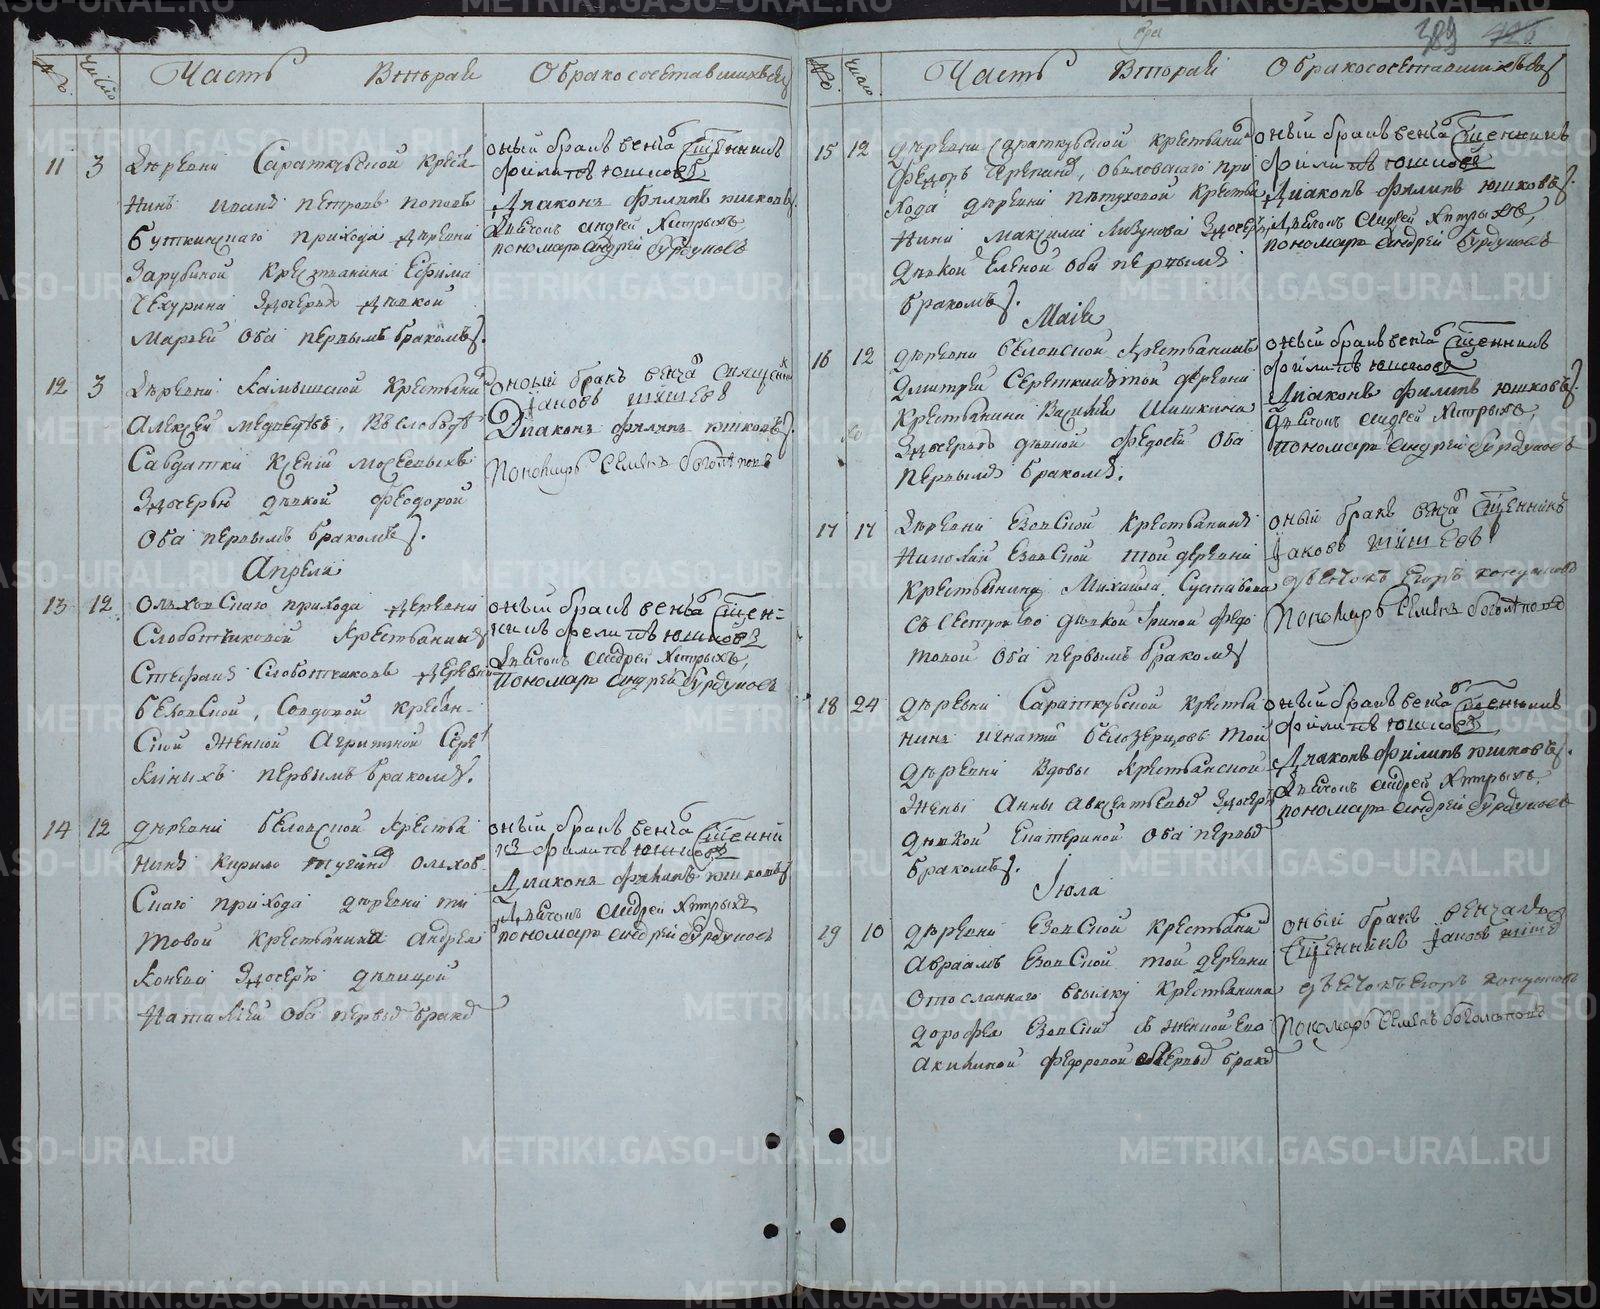 № Число Часть Вторая О бракосочетавшихся
11 3 Деревни Сараткульской Крестья-
нинъ Иванъ Петровъ Поповъ
Буткинскаго прихода деревни
Зарубиной Крестьянина Ефима
Чехурина Здочерью девкой
Марьей оба первымъ бракомъ.
оный бракъ венча Сщенникъ
Филиппъ Юшковъ
Диаконъ Филипъ Юшковъ
Дьячокъ Андрей Хитрыхъ,
пономарь Андрей Бурдуковъ
12 3 Деревни Камышной Крестьяни
Алексей Медведевъ,
Салдатки Ксении
Здочерью девкой Феодорой
Оба первымъ бракомъ.
оной бракъ венча Священникъ
Іаковъ
Диаконъ Филипъ Юшковъ
Пономарь Семенъ Боголеповъ
Апреля
13 12 Ольховскаго прихода деревни
Слоботчиковой Крестьянинъ
Стефанъ Слоботчиковъ деревни
Беловской, Солдовой Крестьян-
ской Женкой Агрипиной Сере
первымъ бракомъ.
оный бракъ венча Сщен-
никъ Филиппъ Юшковъ
Дьячокъ Андрей Хитрыхъ,
Пономарь Андрей Бурдуковъ
14 12 деревни Беловской Крестья
нинъ Кирило Ольхов
скаго прихода деревни Ти
товой Крестьянина Андрея
Конева Здочерью девицой
Натальей оба первый бракъ
оный бракъ венча Сщенни
къ Филиппъ Юшковъ
Диаконъ Филипъ Юшковъ
Дьячокъ Андрей Хитрыхъ
пономарь Андрей Бурдуковъ
389
№ Число Часть Вторая О бракосочетавшихся
15 12 деревни Сараткульской Крестьяни
Федоръ Черепанъ, при
хода деревни Петуховой Крестья
нина Максима Ливунова Здочерью
Девкой Еленой оба первымъ
бракомъ.
оный бракъ венча Сщенникъ
Филиппъ Юшковъ
Диаконъ Филипъ Юшковъ.
Дьячокъ Андрей Хитрыхъ,
пономарь Андрей Бурдуковъ
Маия
16 12 деревни Беловской Крестьянинъ
Дмитрей Серёткинъ той деревни
Крестьянина Василья Шишкина
Здочерью девкой Федосьей Оба
первымъ бракомъ.
оный бракъ венча Сщенникъ
Филиппъ Юшковъ
Диаконъ Филипъ Юшковъ.
Дьячокъ Андрей Хитрыхъ
Пономарь Андрей Бурдуковъ
17 17 Деревни Езовской Крестьянинъ
Николай Езовской той деревни
Крестьянина Михаила Суставова
съ сестрою девкой Ириной Федо
товой оба первымъ бракомъ
оный бракъ венча Сщенникъ
Іаковъ
дьячокъ Егоръ Кокушковъ
Пономарь Семенъ Боголеповъ
18 24 деревни Сараткульской Крестья
нинъ Игнатий Белозерцовъ той
деревни Вдовы Крестьянской
Жены Анны Авксентьевы Здочерью
девкой Екатериной оба первы
бракомъ.
оный бракъ венча Сщенникъ
Филиппъ Юшковъ
Диаконъ Филипъ Юшковъ.
Дьячокъ Андрей Хитрыхъ,
пономарь Андрей Бурдуковъ
Іюла
19 10 деревни Езовской Крестьяни
Авраамъ Езовской той деревни
отосланнаго всылку Крестьянина
Дорофея Езовски Женкой Ево
Акилиной Федоровой первый бракъ
оный бракъ венчалъ
Сщенникъ Іаковъ
дьячокъ Егоръ Кокушковъ
Пономарь Семенъ Боголеповъ
METRIKI.GASO-URAL.RU